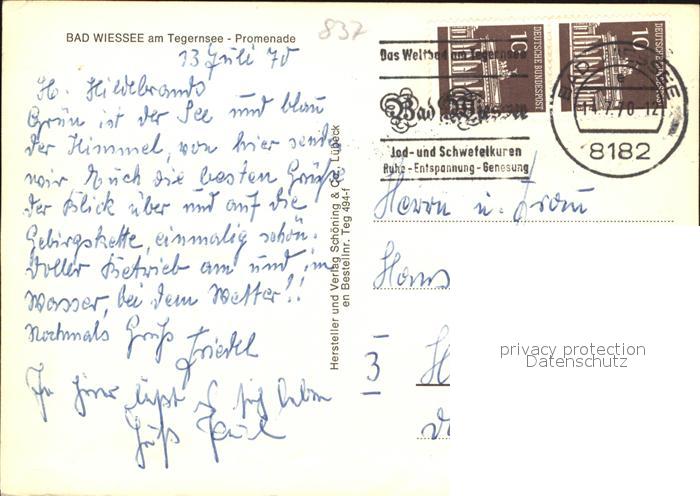 BAD WIESSEE am Tegernsee - Promenade
837
13 Juli 70
H. Hildebrands
Grün ist der See und blau
der Himmel, von hier senden
wir Euch die besten Grüße
der Blick über und auf die
Gebirgskette, einmalig schön.
Voller Betrieb am und im
Wasser, bei dem Wetter!!
Nochmals Gruß
Friedel
Ja hier läßt sich leben
Gruß
Hersteller und Verlag Schöning & Co., Lübeck
en Bestellnr. Teg 494-f
Das Weltbad am Tegernsee
Bad Wiessee
Jod- und Schwefelkuren
Ruhe - Entspannung - Genesung
10 DEUTSCHE BUNDESPOST
10 DEUTSCHE BUNDESPOST
BAD WIESSEE
14.7.70.12
8182
Herrn u. Frau
Hans
3 H
privacy protection
Datenschutz